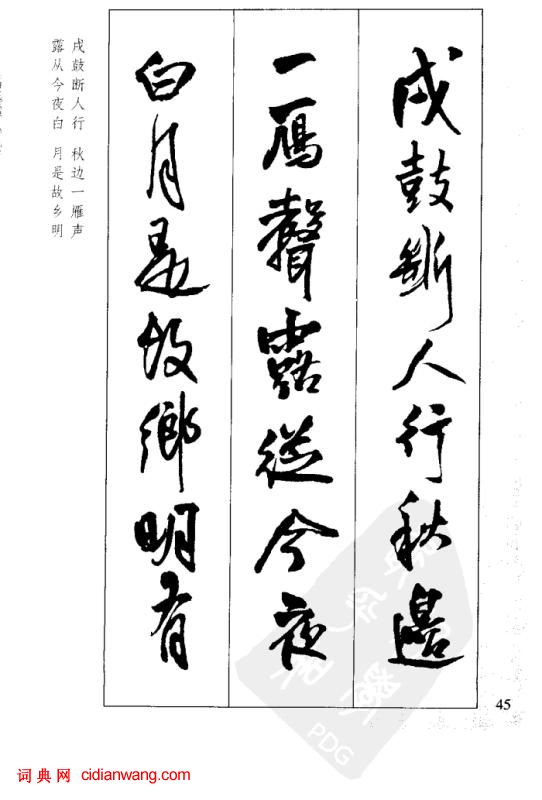 戍鼓斷人行秋邊
一鴈聲露從今夜
白月是故鄉明有
戍鼓断人行 秋边一雁声
露从今夜白 月是故乡明
45
PDG
词典网 cidianwang.com